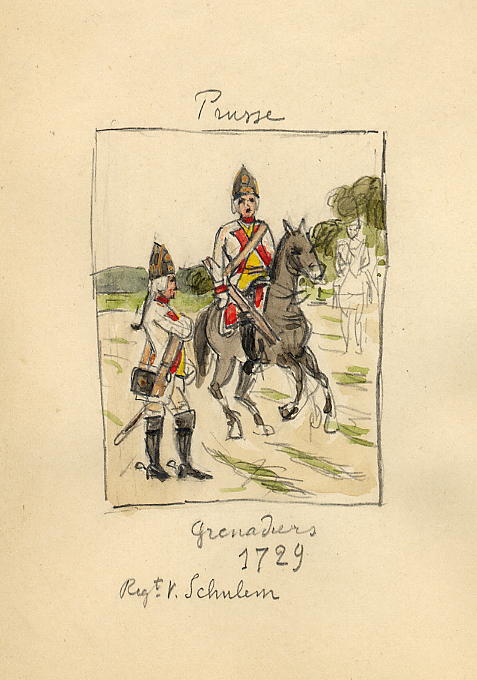 Prusse
Grenadiers
1729
Regt. V. Schulem